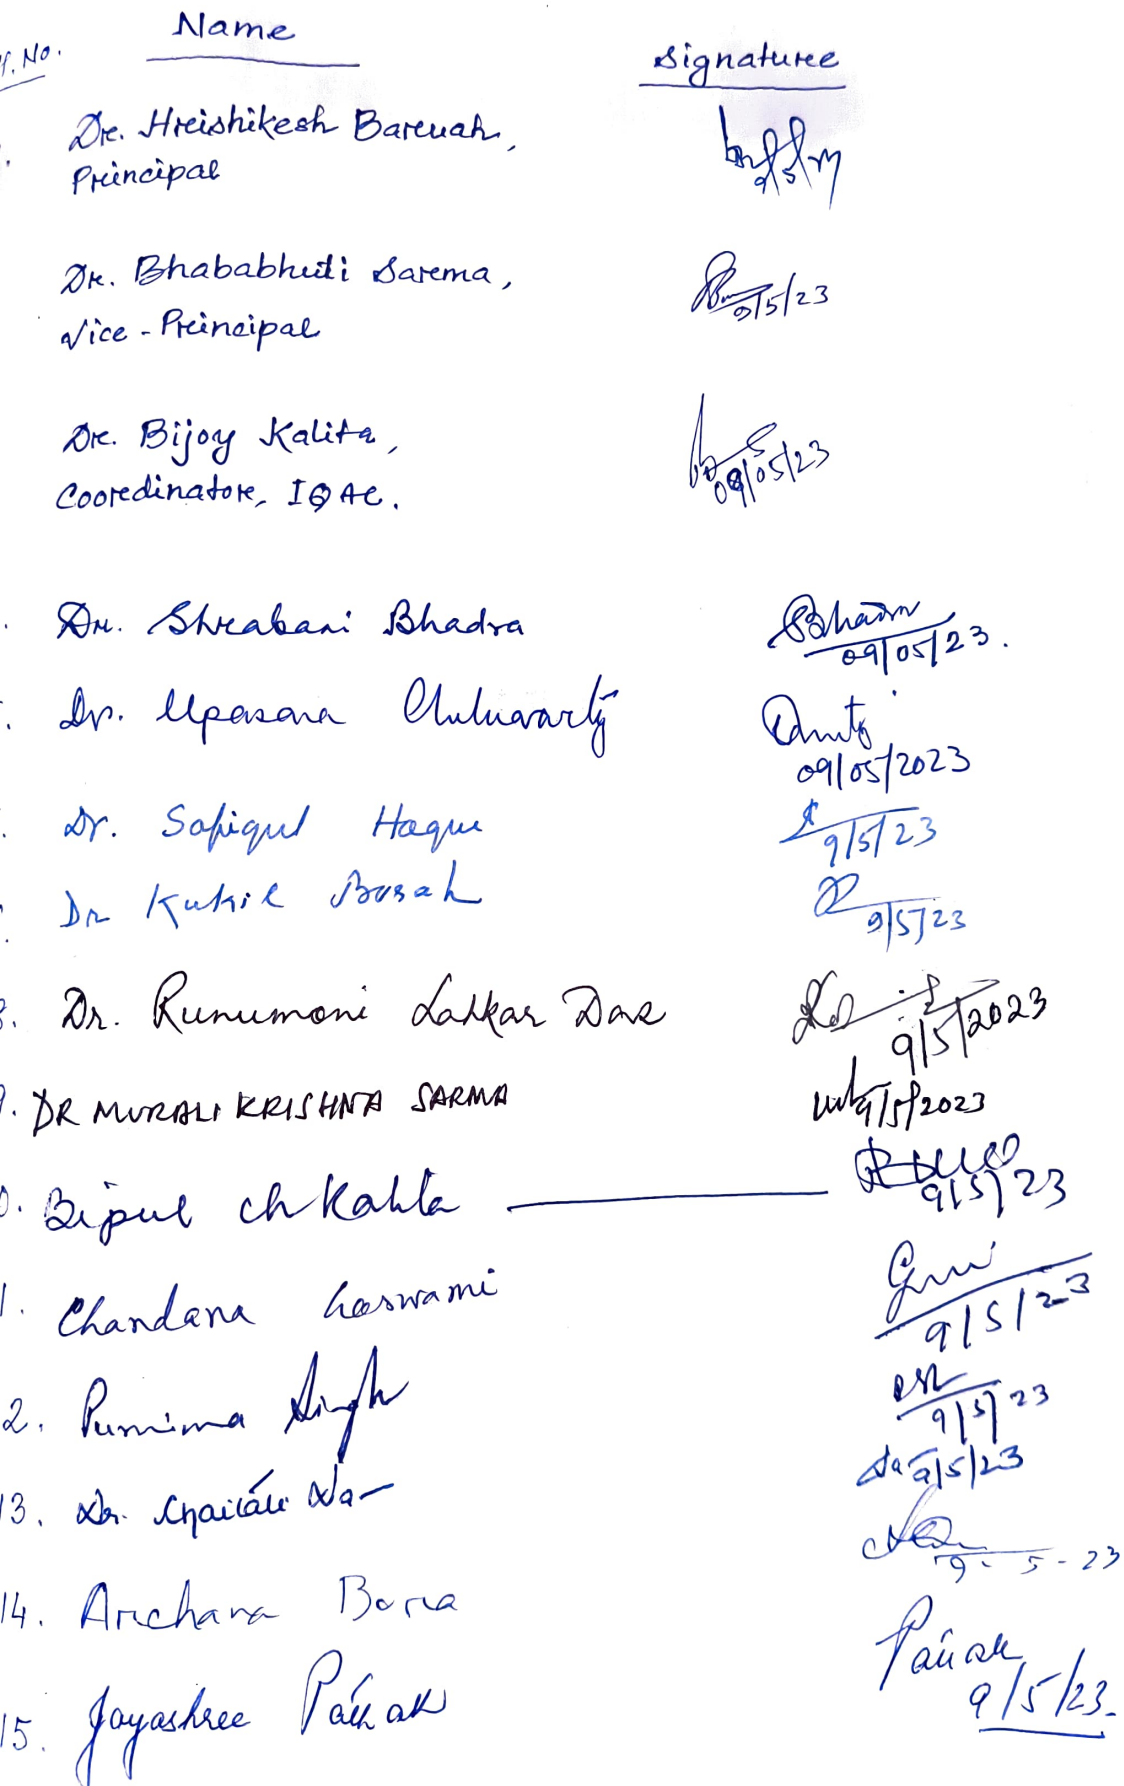 Sl. No. Name Signature
Dr. Hrishikesh Baruah,
Principal
Dr. Bhababhuti Sarma, 9/5/23
Vice-Principal
Dr. Bijoy Kalita, 09/05/23
Coordinator, IQAC.
Dr. Shrabani Bhadra 09/05/23.
Dr. Upasana Chakravarty 09/05/2023
Dr. Sofiqul Haque 9/5/23
Dr Kukil Borah 9/5/23
8. Dr. Runumoni Lahkar Das 9/5/2023
9. DR MURALI KRISHNA SARMA 9/5/2023
Bipul ch Kalita 9/5/23
Chandana Goswami 9/5/23
2. Purnima Singh 9/5/23
13. Dr. Chaitali Das 9/5/23
14. Archana Bora 9-5-23
15. Jayashree Pathak Pathak 9/5/23.